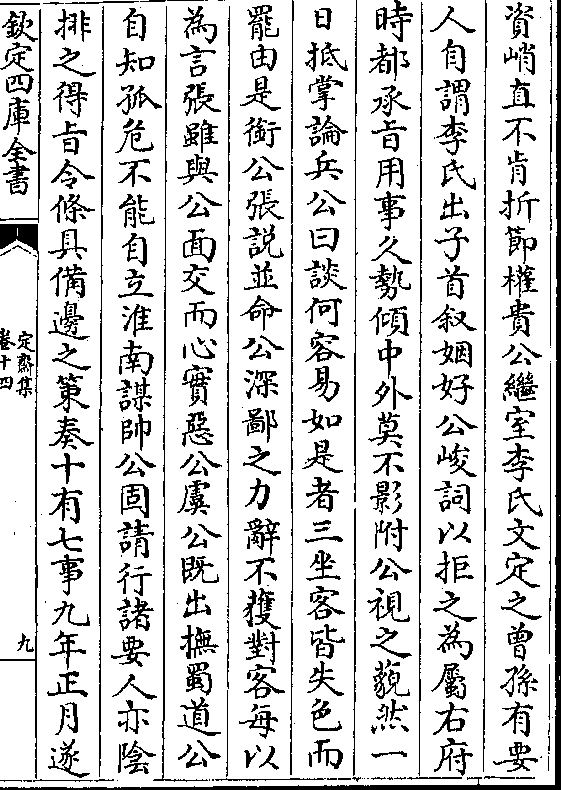 資峭直不肯折節權貴公繼室李氏文定之曾孫有要
人自謂李氏出子首叙姻好公峻詞以拒之為屬右府
時都承旨用事久勢傾中外莫不影附公視之藐然一
日抵掌論兵公曰談何容易如是者三坐客皆失色而
罷由是銜公張説並命公深鄙之力辭不獲對客每以
為言張雖與公面交而心實惡公虞公既出撫蜀道公
自知孤危不能自立淮南謀帥公固請行諸要人亦陰
排之得旨令條具備邊之策奏十有七事九年正月遂
欽定四庫全書
定齋集
卷十四
九